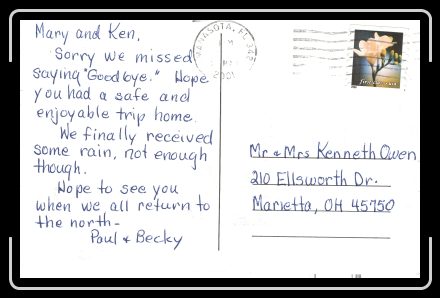 Mary and Ken,
Sorry we missed
saying "Goodbye." Hope
you had a safe and
enjoyable trip home.
We finally received
some rain, not enough
though.
Hope to see you
when we all return to
the north-
Paul & Becky
FL 342
2001
Mr & Mrs Kenneth Owen
210 Ellsworth Dr.
Marietta, OH 45750